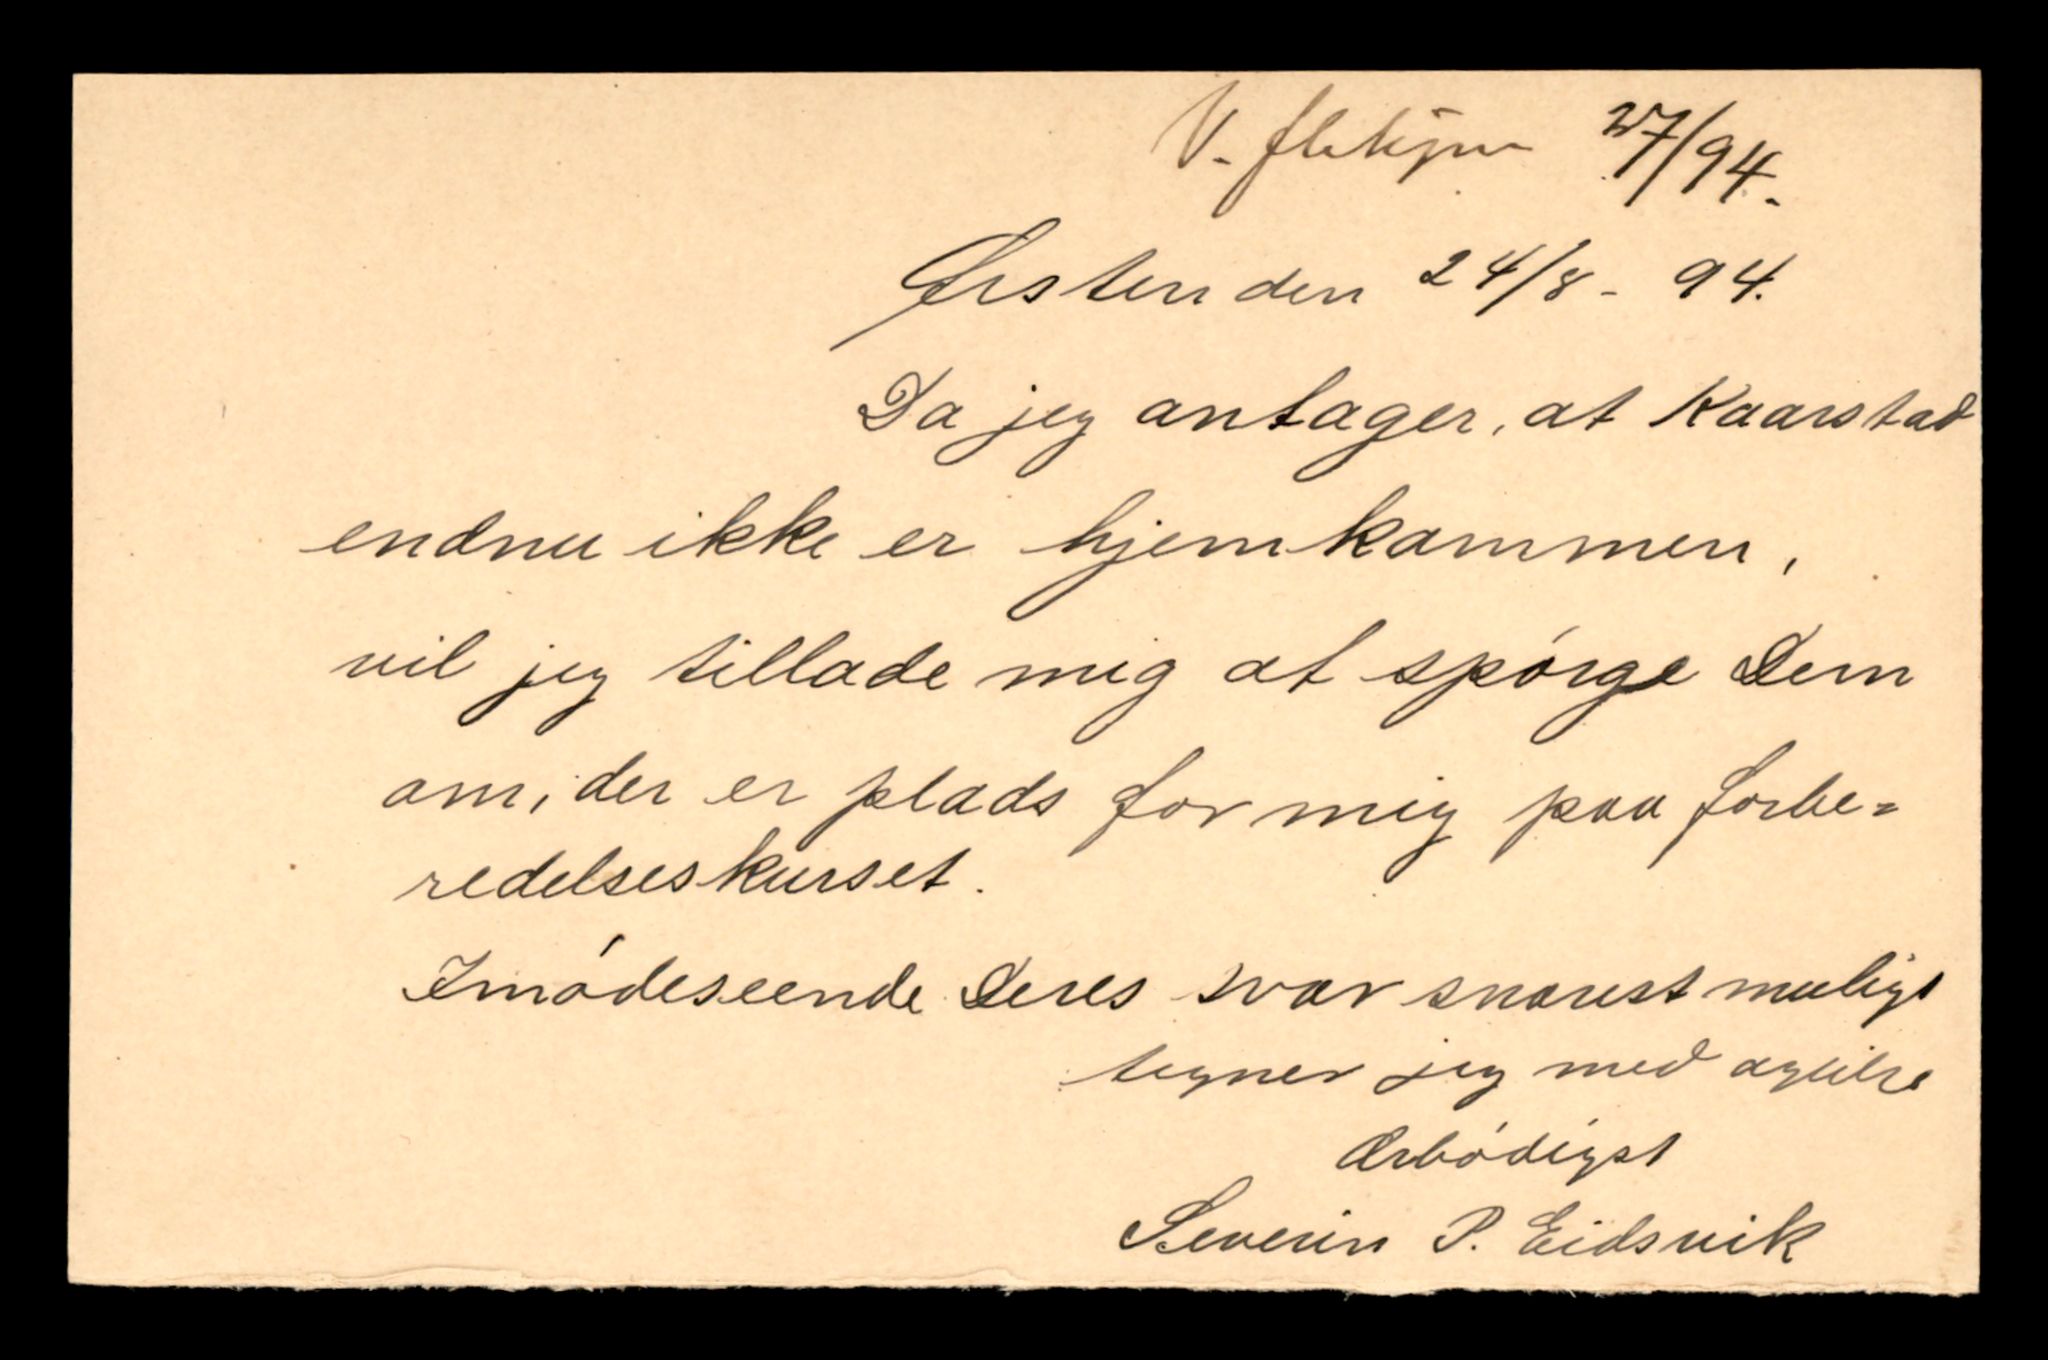 27/94.
Ørsten den 24/8 - 94.
Da jeg antager, at Kaarstad
endnu ikke er hjemkommen,
vil jeg tillade mig at spórge Dem
om, der er plads for mig paa forbe=
redelseskurset.
Imódeseende Deres svar snarest muligt
tegner jeg med agtelse
Ærbódigst
Severin P. Eidsvik